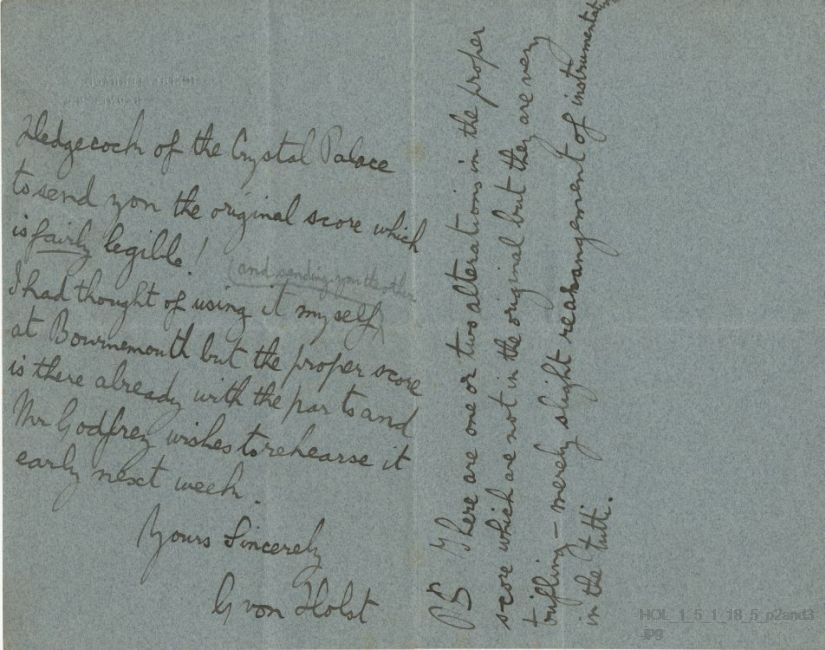 Hedgecock of the Crystal Palace
to send you the original score which
is fairly legible!
(and sending you the other
I had thought of using it myself)
at Bournemouth but the proper score
is there already with the parts and
Mr Godfrey wishes to rehearse it
early next week.
Yours Sincerely
G von Holst
PS There are one or two alterations in the proper
score which are not in the original but they are very
trifling – merely slight rearrangement of instrumentation
in the tutti.
HOL_1_5_1_18_5_p2and3
.jpg